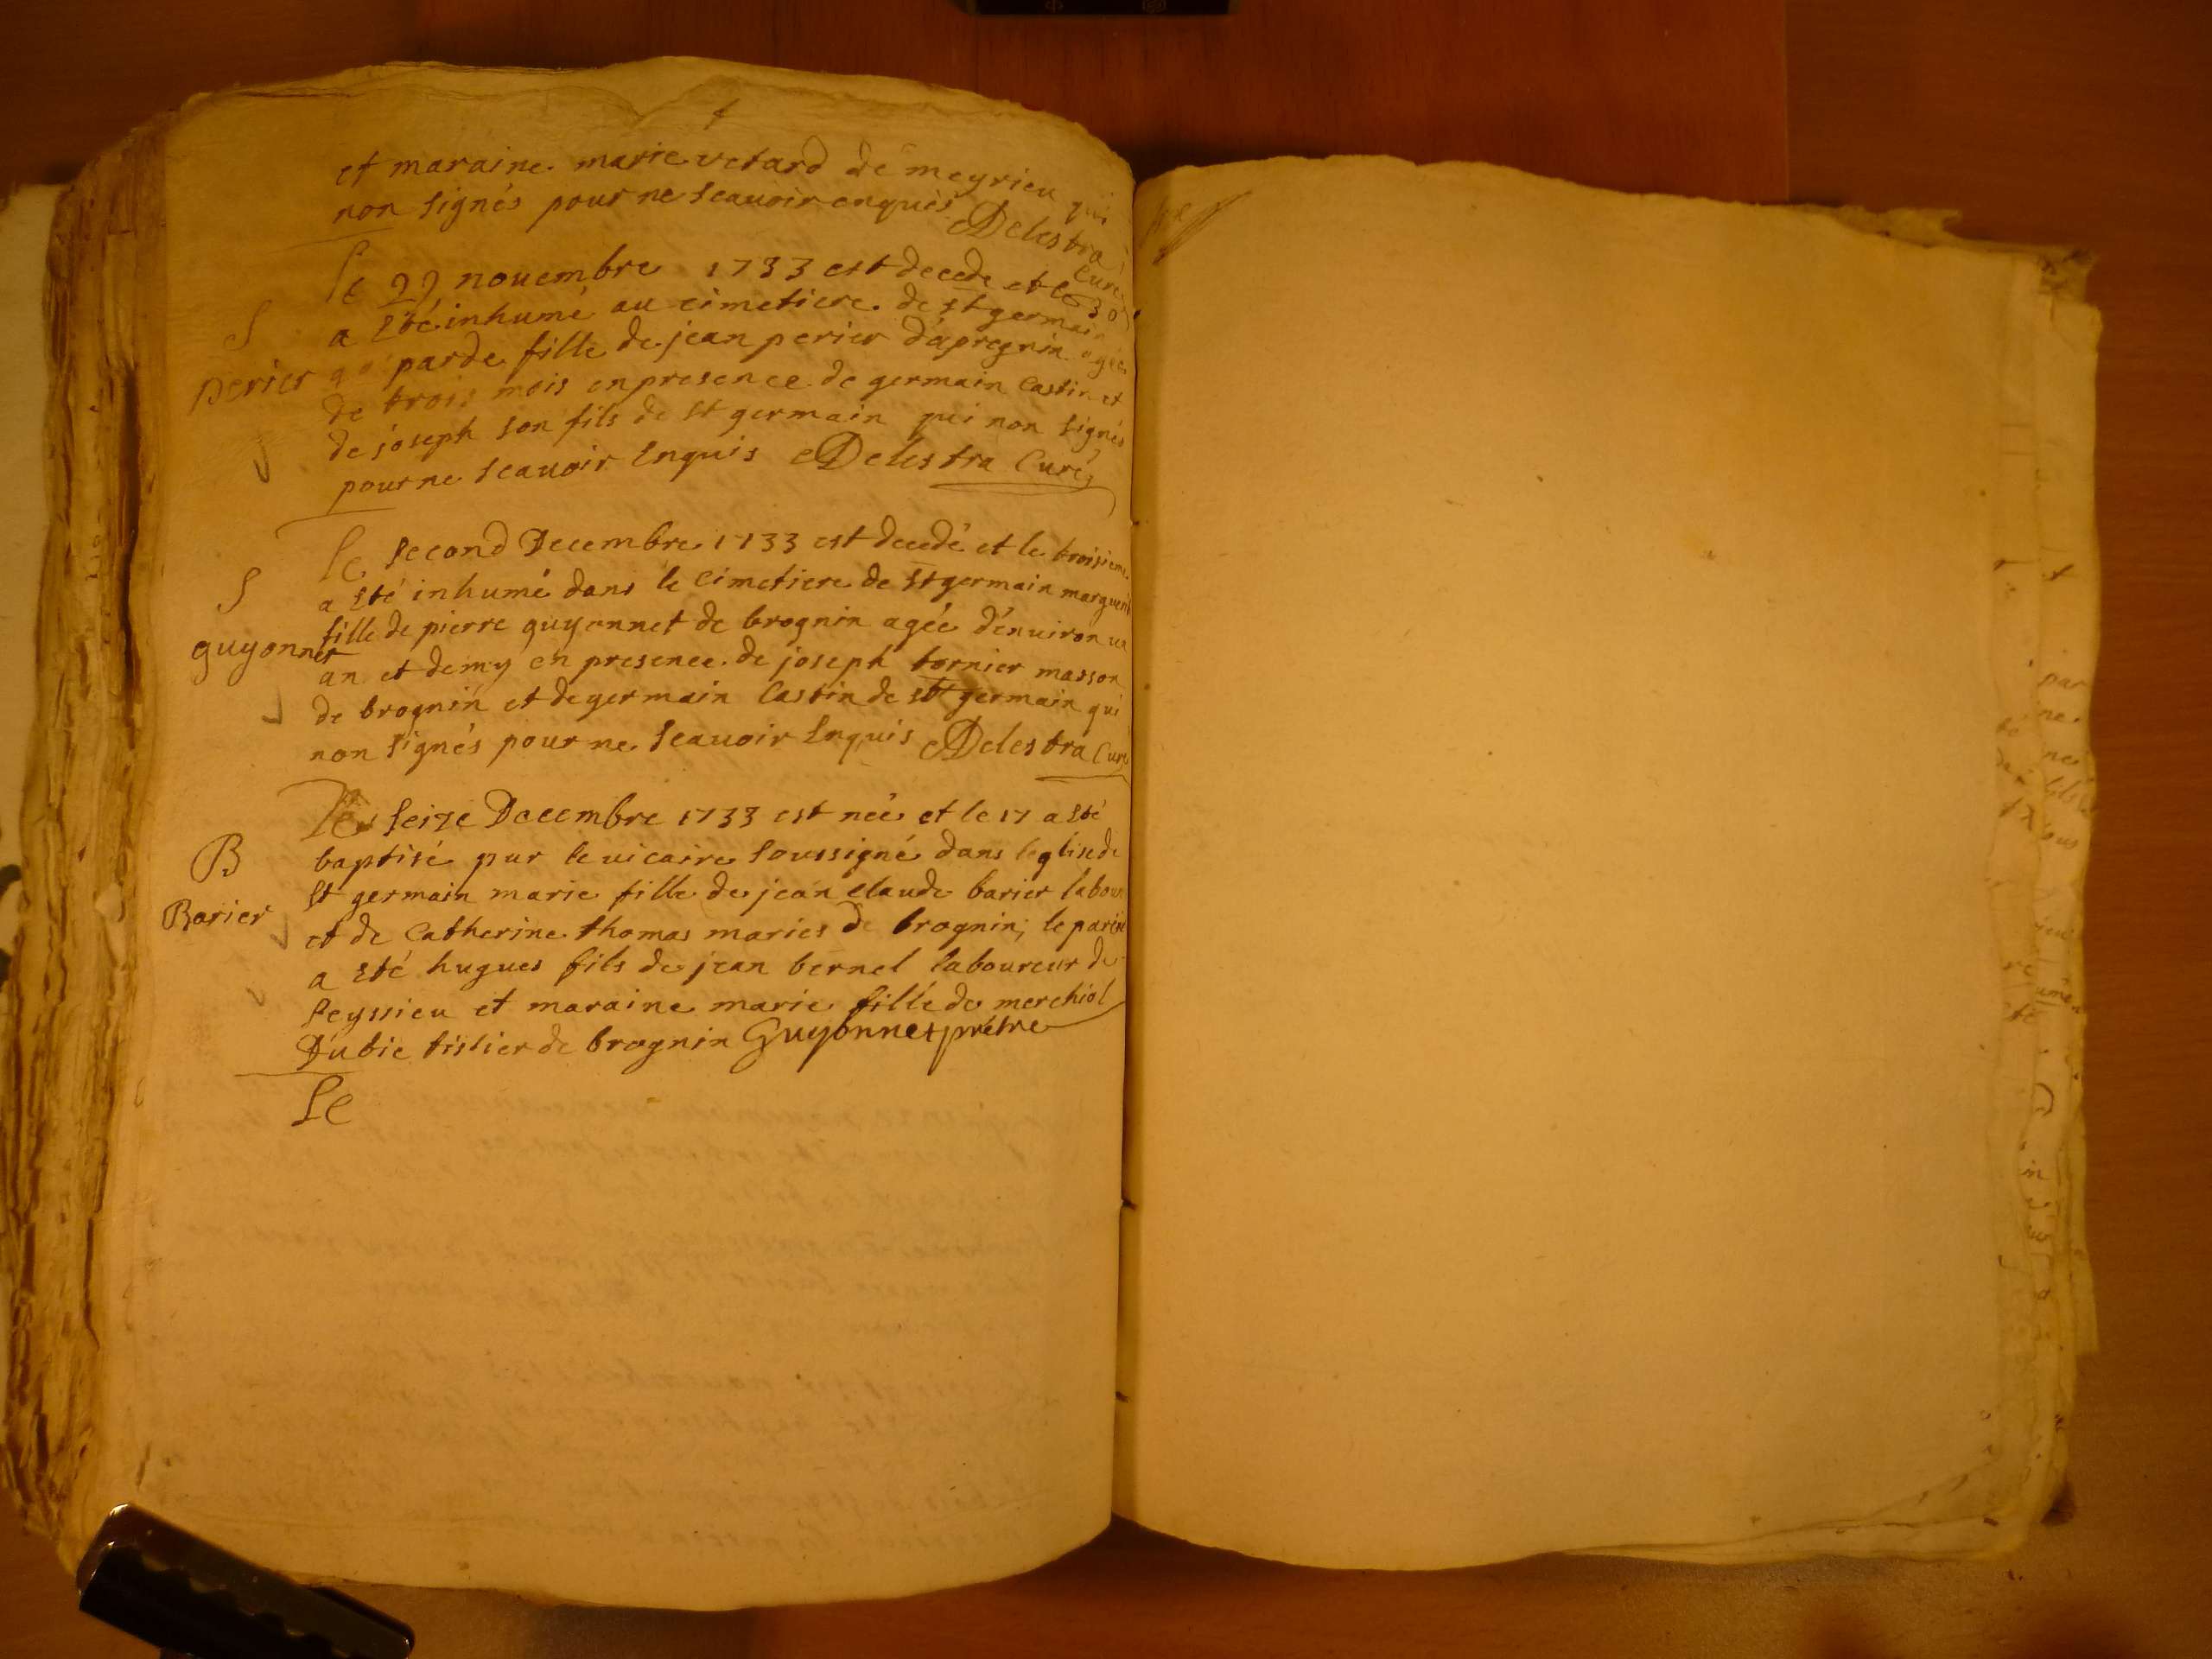 et maraine marie vetard de meyrieu qui
non signés pour ne scauoir enquis Delestra
Curé
Le 29 nouembre 1733 est decede et le 30
S
a esté inhumé au cimetiere de st germain
perier
parde fille de jean perier d'apregnin agée
de trois mois en presence de germain Castin et
de joseph son fils de st germain qui non signés
pour ne scauoir Enquis Delestra Curé
Le second Decembre 1733 est decedé et le troisieme
S
a esté inhumé dans le cimetiere de st germain marguerite
guyonnet
fille de pierre guyonnet de brognin agée d'enuiron un
an et demy en presence de joseph tornier masson
de brognin et de germain Castin de st germain qui
non signés pour ne scauoir Enquis Delestra Curé
Le seize Decembre 1733 est née et le 17 a esté
B
baptisé par le uicaire soussigné dans leglise de
st germain marie fille de jean claude barier labour
Barier
et de Catherine thomas maries de brognin; le parein
a esté hugues fils de jean bernel laboureur de
seyssieu et maraine marie fille de merchiol
Dubie tissier de brognin Guyonnet prêtre
Le